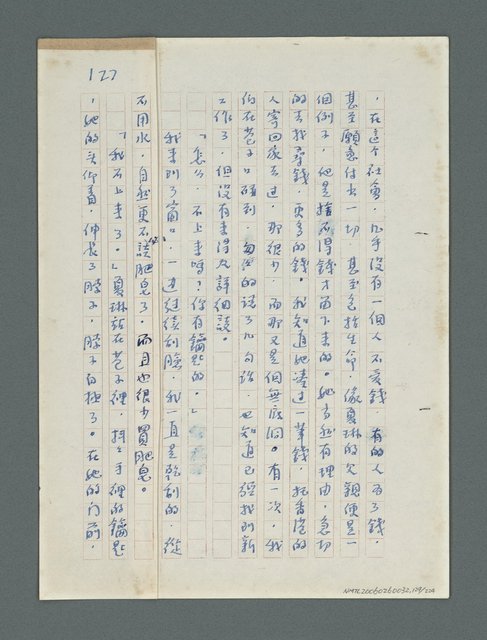 127
，在這个社會，几乎沒有一個人不愛錢，有的人為了錢，
甚至願意付出一切，甚至包括生命，像夏琳的父親便是一
個例子，他是捨不得錢才留下來的。她當然有理由，急切
的去找尋錢，更多的錢。我知道她湊过一筆錢，托香港的
人寄回家去过，那很少，而那又是個無底洞。有一次，我
們在巷子口碰到，匆匆的談了几句話，也知道已經找到新
工作了，但沒有來得及詳細談。
「怎么，不上來嗎？你有鑰匙的。」
我來到了窗口，一边繼續刮臉，我一直是乾刮的，從
不用水，自然更不談肥皂了，而且也很少買肥皂。
「我不上來了。」夏琳站在巷子裡，揚了手裡的鑰匙
，她的头仰着，伸長了脖子，脖子白極了。在她的门前，
NMTL20060260032,129/224